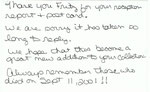 Thank you Fritz for your reception
report + post card.
We are sorry it has taken so
long to reply.
We hope that this become a
great new addition to your collection
Always remember those who
died on Sept 11, 2001!!